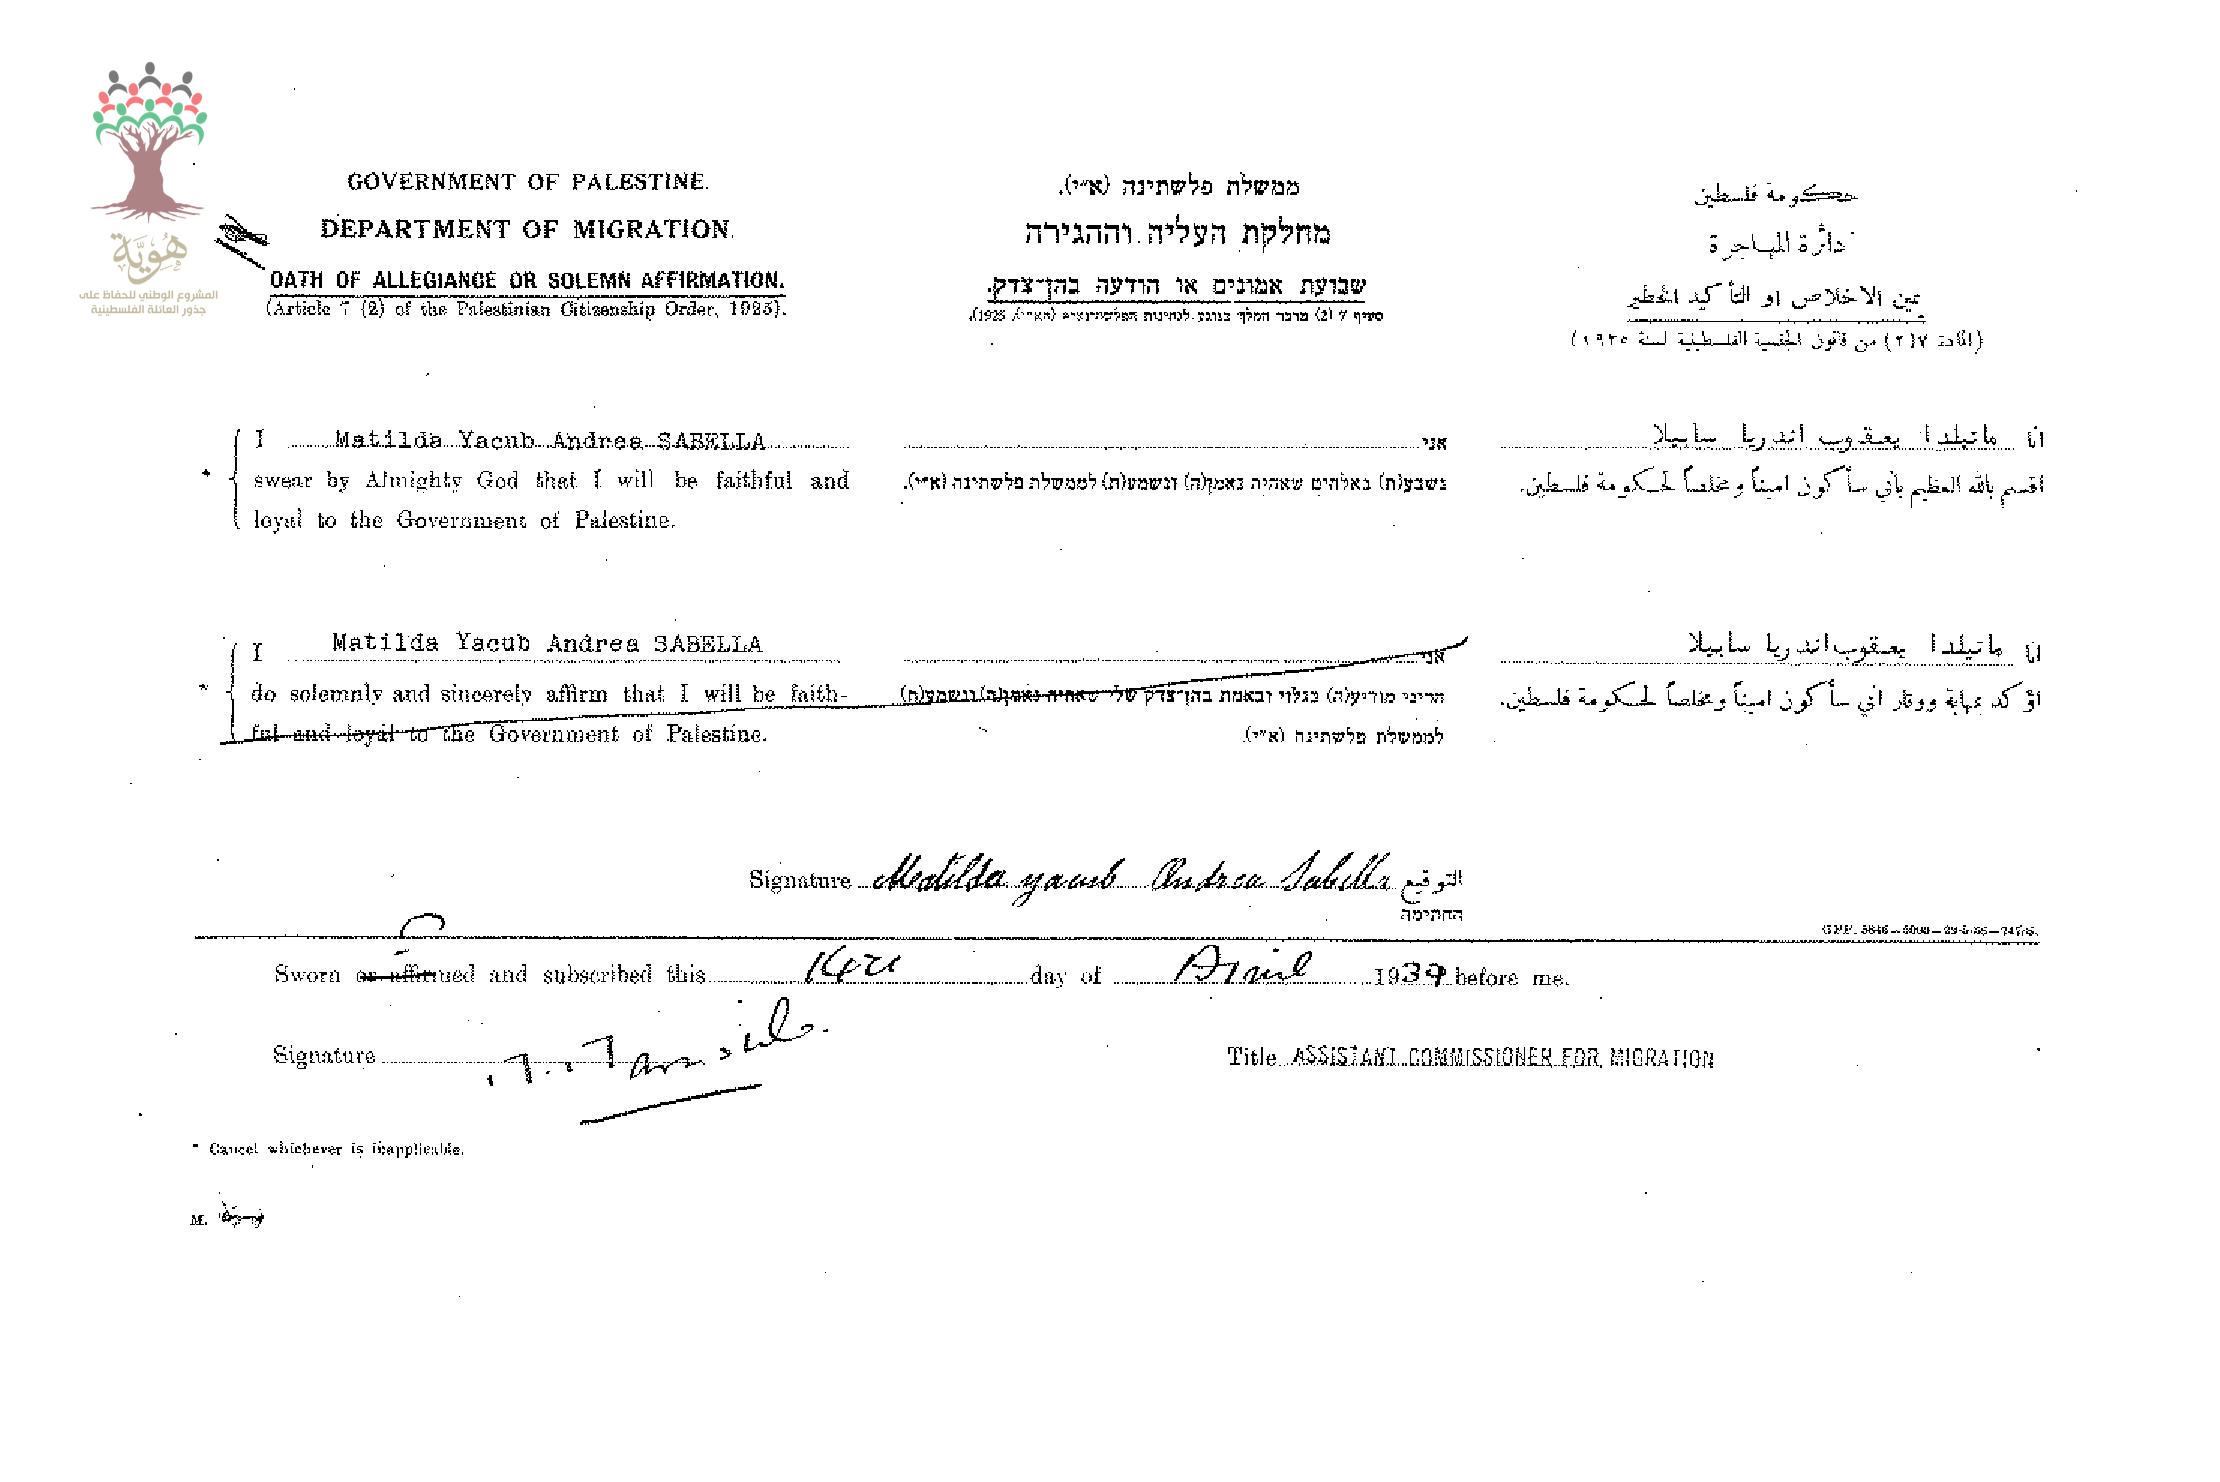 هُوِيَّة
المشروع الوطني للحفاظ على
جذور العائلة الفلسطينية
GOVERNMENT OF PALESTINE.
DEPARTMENT OF MIGRATION.
OATH OF ALLEGIANCE OR SOLEMN AFFIRMATION.
(Article 7 (2) of the Palestinian Citizenship Order, 1925).
ממשלת פלשתינה (א״י).
מחלקת העליה וההגירה
שבועת אמונים או הודעה בהן־צדק.
סעיף 7 (2) מדבר המלך בנוגע לנתינות הפלשתינאית (הא״י), 1925).
حكومة فلسطين
دائرة المهاجرة
يمين الاخلاص او التأكيد الخطير
(المادة ٧(٢) من قانون الجنسية الفلسطينية لسنة ١٩٢٥)
* I Matilda Yacub Andrea SABELLA
swear by Almighty God that I will be faithful and
loyal to the Government of Palestine.
אני
נשבע(ת) באלהים שאהיה נאמן(ה) ונשמע(ת) לממשלת פלשתינה (א״י).
انا ماتيلدا يعقوب اندريا سابيلا
اقسم بالله العظيم بأني سأكون اميناً ومخلصاً لحكومة فلسطين.
* I Matilda Yacub Andrea SABELLA
do solemnly and sincerely affirm that I will be faith-
ful and loyal to the Government of Palestine.
אני
הריני מודיע(ה) בגלוי ובאמת בהן־צדק שלי שאהיה נאמן(ה) ונשמע(ת)
לממשלת פלשתינה (א״י).
انا ماتيلدا يعقوب اندريا سابيلا
اؤكد بمهابة ووقار اني سأكون اميناً ومخلصاً لحكومة فلسطين.
Signature Matilda yacub Andrea Sabella التوقيع
החתימה
Sworn or affirmed and subscribed this 14th day of April 1939 before me.
Signature
Title ASSISTANT COMMISSIONER FOR MIGRATION
* Cancel whichever is inapplicable.
M.